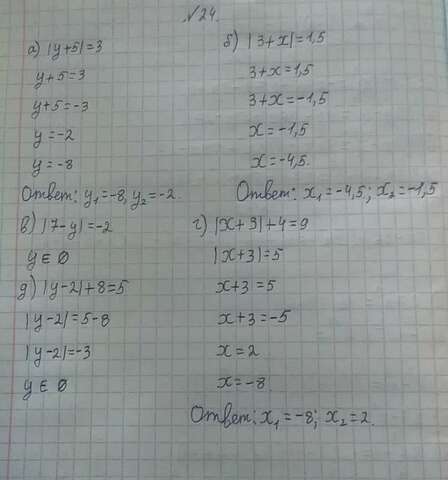 №24.
а) |y+5|=3
y+5=3
y+5=-3
y=-2
y=-8
Ответ: y₁=-8, y₂=-2.
б) |3+x|=1,5
3+x=1,5
3+x=-1,5
x=-1,5
x=-4,5.
Ответ: x₁=-4,5; x₂=-1,5
в) |7-y|=-2
y∈∅
г) |x+3|+4=9
|x+3|=5
x+3=5
x+3=-5
x=2
x=-8.
Ответ: x₁=-8; x₂=2.
д) |y-2|+8=5
|y-2|=5-8
|y-2|=-3
y∈∅